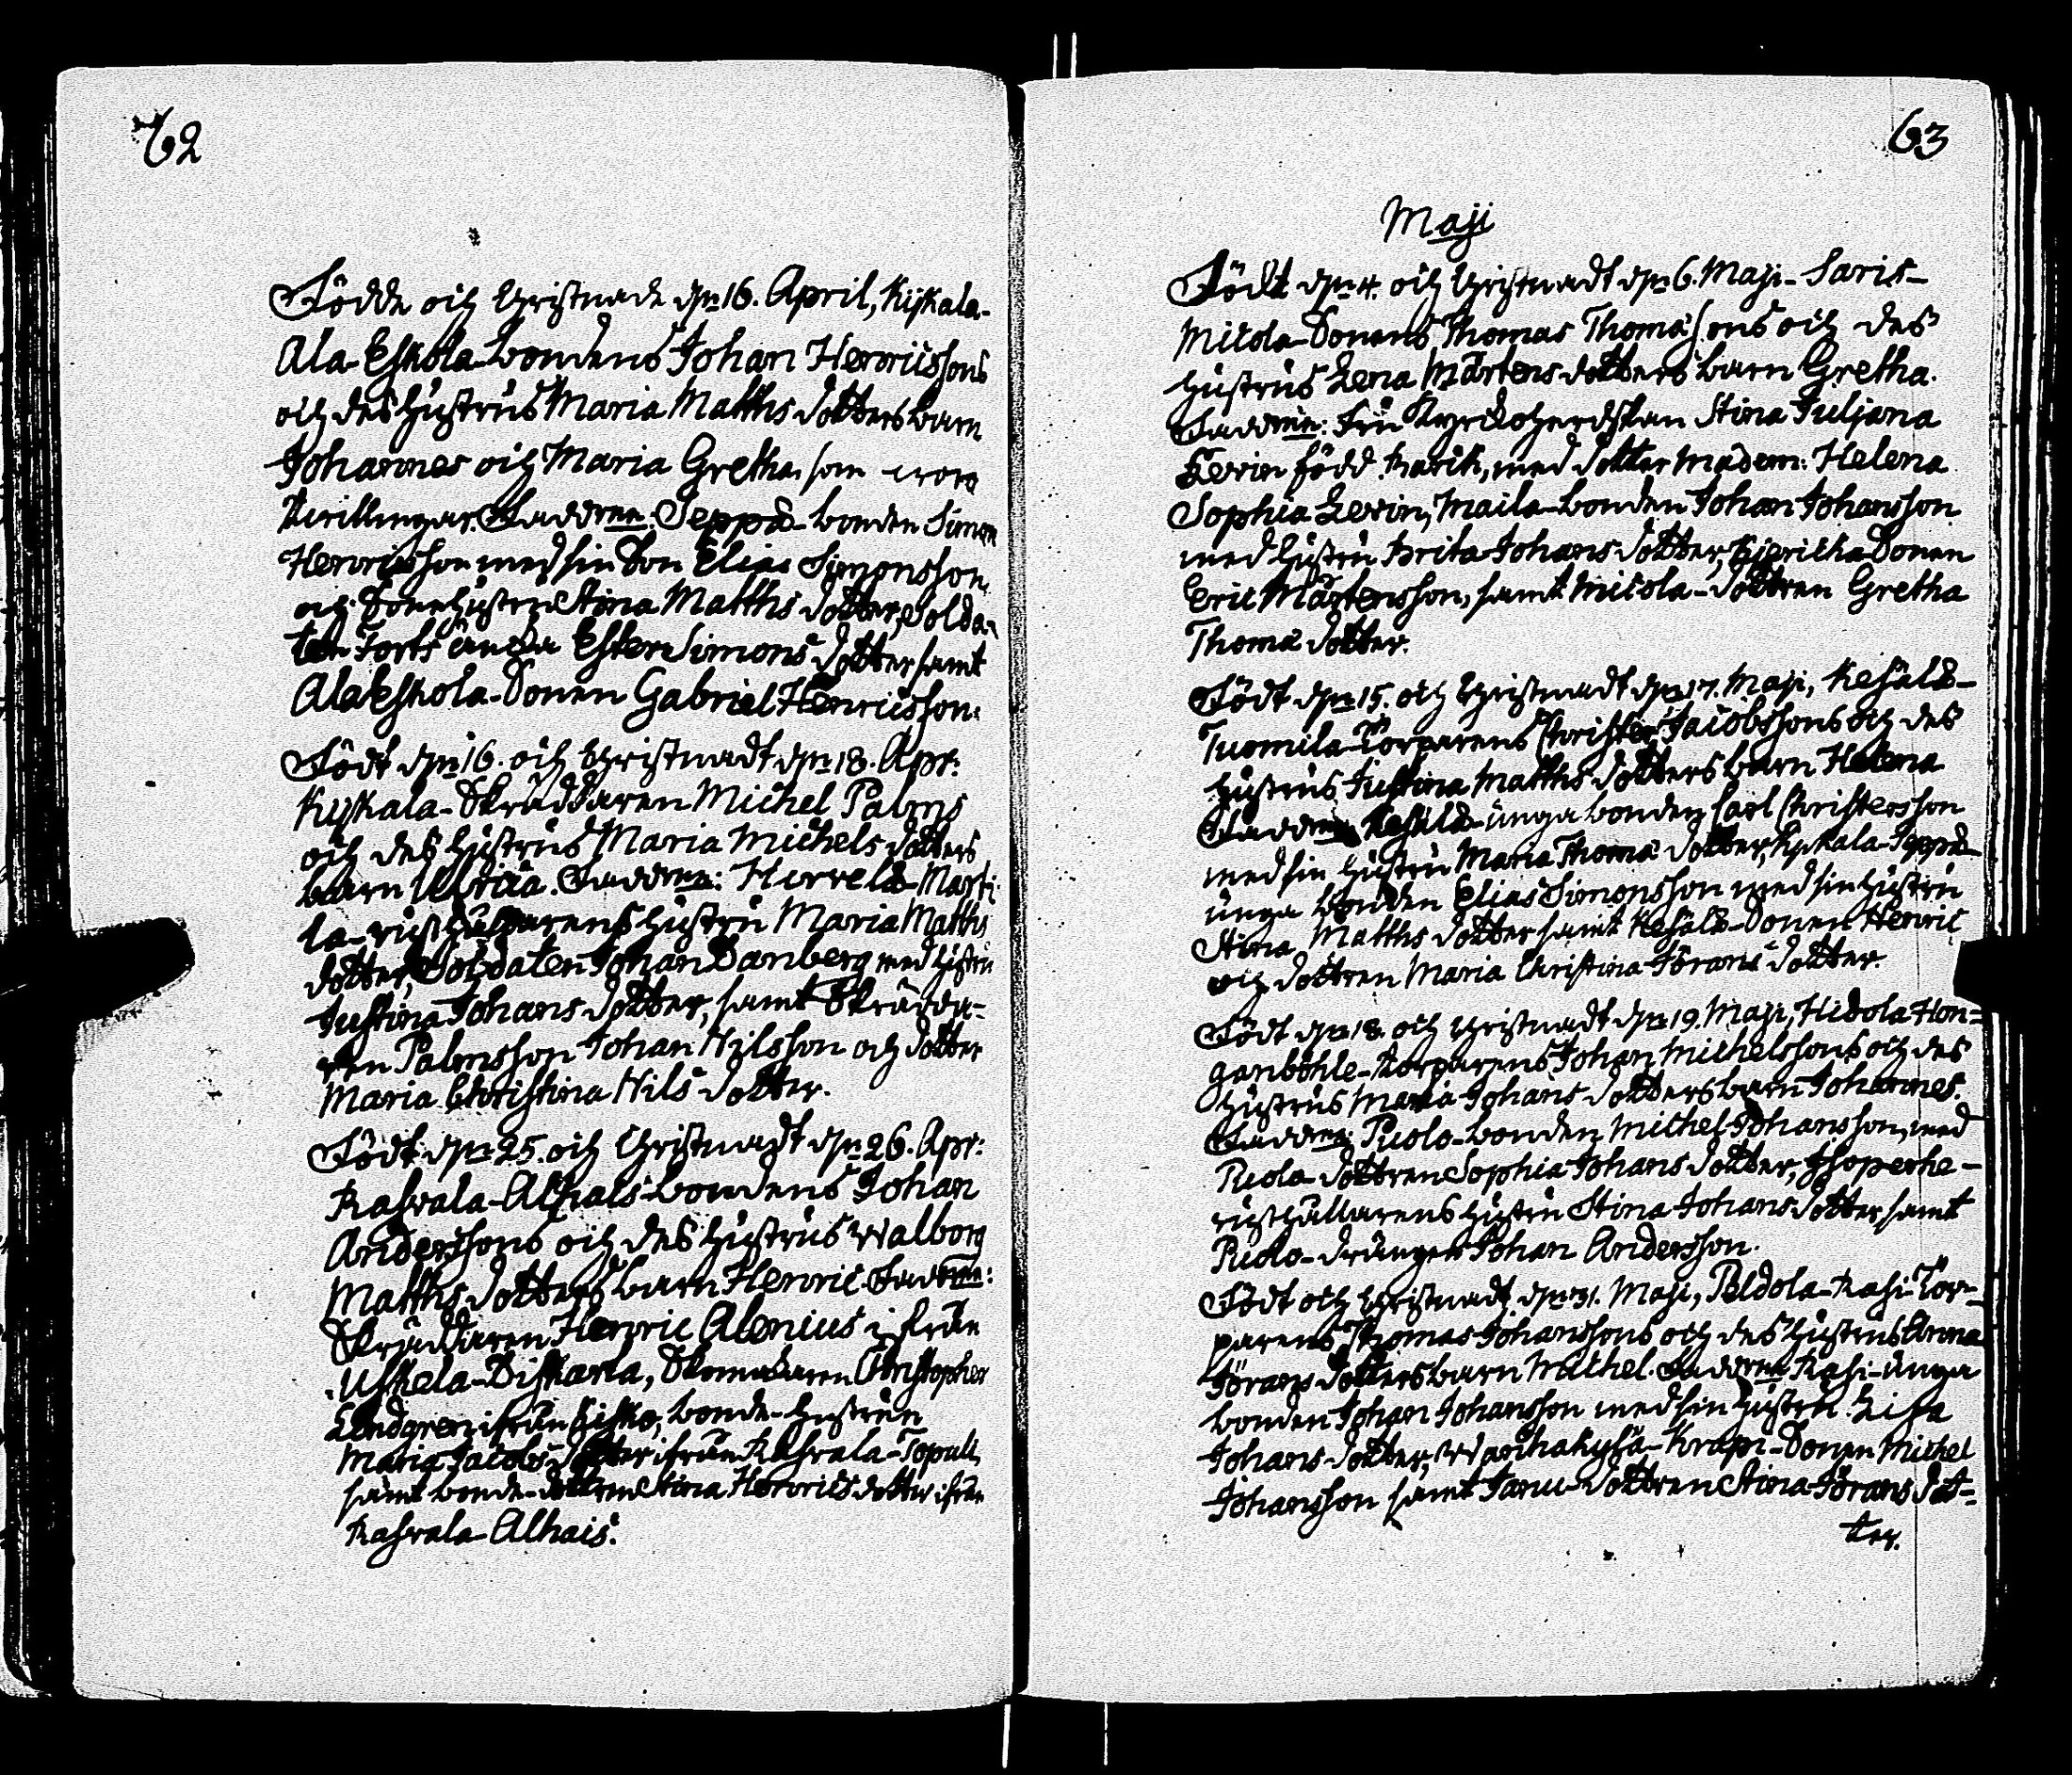 62
Födde och Christnade d. 16. April, Kijkala-
Ala-Eskola-bondens Johan Henricssons
och des hustrus Maria Matths dotters barn
Johannes och Maria Gretha som woro
twillingar. Faddrne: Seppä-bonden Simon
Henricsson med sin Son Elias Simonsson
och Sonehustrun Stina Matths dotter, Solda-
ten Forss änka Ester Simons dotter samt
Ala Eskola-Sonen Gabriel Henricsson.
Födt d. 16. och Christnadt d. 18. Apr:
Kijkala-Skräddaren Michel Palms
och des hustrus Maria Michels dotters
barn Ulrica. Faddrne: Hirvelä-Marti-
la-rusthållarens hustru Maria Matths
dotter, Soldaten Johan Danberg med hustru
Justina Johans dotter, samt Skrädda-
ren Palms son Johan Nilsson och dotter
Maria Christina Nils dotter.
Födt d. 25. och Christnadt d. 26. Apr:
Rasvala-Alhais-bondens Johan
Anderssons och des hustrus Walborg
Matths dotters barn Henric. Faddrne:
Skräddaren Henric Alenius ifrån
Uskela-Diskarla, Skomakaren Christopher
Lindgren ifrån Kisko, bonde-hustrun
Maria Jacobs dotter ifrån Rasvala-Topuli
samt bonde-dottren Stina Henrics dotter ifrån
Rasvala-Alhais.
63
Maji
Födt d. 4. och Christnadt d. 6. Maji-Saris-
Micola-Sonens Thomas Thomä sons och des
hustrus Lena Mårtens dotters barn Gretha.
Faddrne: Fru Kyrckoherdskan Stina Juljana
Levin född med dotter Madem: Helena
Sophia Levin, Maila-bonden Johan Johansson
med hustru Brita Johans dotter, Sonen
Eric Mårtensson, samt Micola-dottren Gretha
Thomä dotter.
Födt d. 15. och Christnadt d. 17. Maji, Kesälä-
Tuomila-Torparens Christer Jacobssons och des
hustrus Justina Matths dotters barn Helena
Faddrne Kesälä-unga bonden Carl Christersson
med sin hustru Maria Thomä dotter, Kijkala-Seppä-
unga bonden Elias Simonsson med sin hustru
Stina Matths dotter samt Kesälä-Sonen Henric
och dottren Maria Christina Görans dotter.
Födt d. 18. och Christnadt d. 19. Maji, Hidola Hon-
ganböhle-torparens Johan Michelssons och des
hustrus Maria Johans dotters barn Johannes.
Faddrne: Puolo-bonden Michel Johansson, med
Puolo-dottren Sophia Johans dotter,
rusthållarens hustru Stina Johans dotter samt
Puolo-drängen Johan Andersson.
Födt och Christnadt d. 31. Maji, Peldola-Rasi-Tor-
parens Thomas Johanssons och des hustrus Anna
Görans dotters barn Michel. Faddrne Rasi-unga
bonden Johan Johansson med sin hustru Lisa
Johans dotter, Wanhakylä-Krapi-Sonen Michel
Johansson samt Janu-dottren Stina Görans dot-
ter.